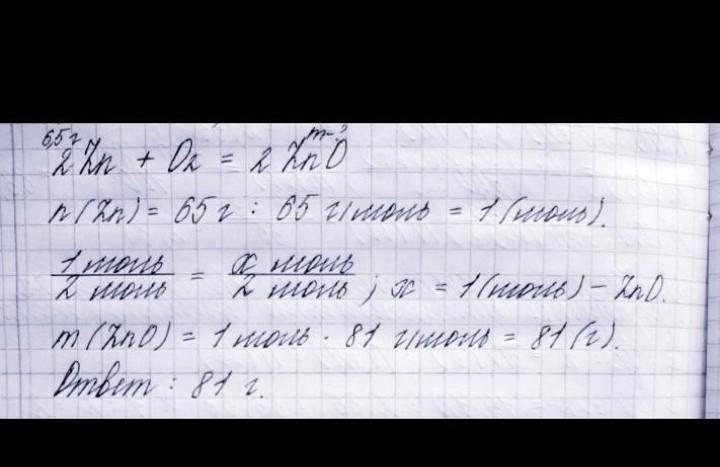 6,5 г m-?
2Zn + O2 = 2 ZnO
n(Zn) = 65 г : 65 г/моль = 1 (моль).
1 моль / 2 моль = x моль / 2 моль ; x = 1 (моль) – ZnO.
m(ZnO) = 1 моль · 81 г/моль = 81 (г).
Ответ: 81 г.